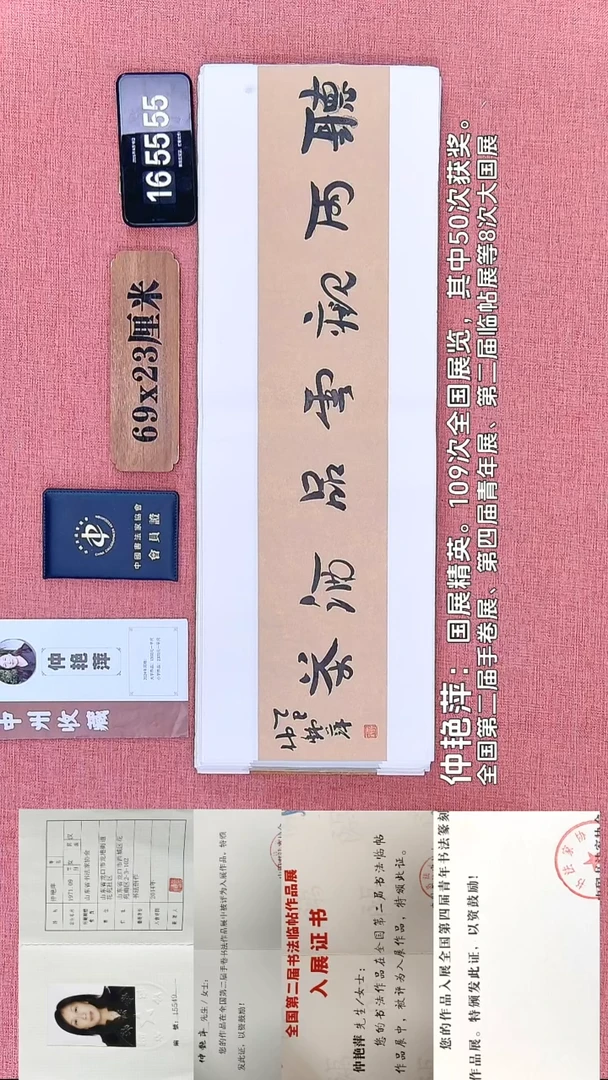 聽雨觀雲品酒茶
仲艳萍：国展精英。109次全国展览，其中50次获奖。
全国第二届手卷展、第四届青年展、第二届临帖展等8次大国展
16 55 55
69x23厘米
中國書法家協會
會員證
仲艳萍
中州收藏
山东省书法家协会
仲艳萍 先生/女士：
您的作品在全国第二届手卷书法作品展中被评为入展作品，特颁
发此证，以资鼓励！
全国第二届书法临帖作品展
入展证书
仲艳萍 先生/女士：
您的书法作品在全国第二届书法临帖
作品展中，被评为入展作品，特颁此证。
您的作品入展全国第四届青年书法篆刻
作品展。特颁发此证，以资鼓励！